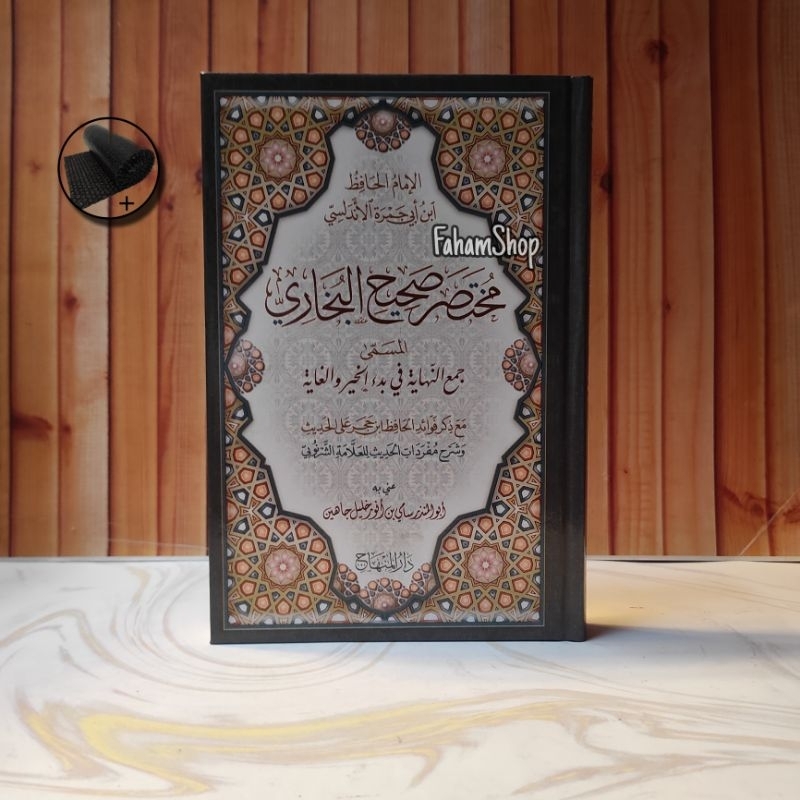 الإمام الحافظ
ابن أبي جمرة الأندلسي
FahamShop
مختصر صحيح البخاري
المسمى
جمع النهاية في بدء الخير والغاية
مع ذكر فوائد الحافظ ابن حجر على الحديث
وشرح مفردات الحديث للعلامة الشرنوبي
عني به
أبو المنذر سامي بن أنور خليل جاهين
دار المنهاج
+